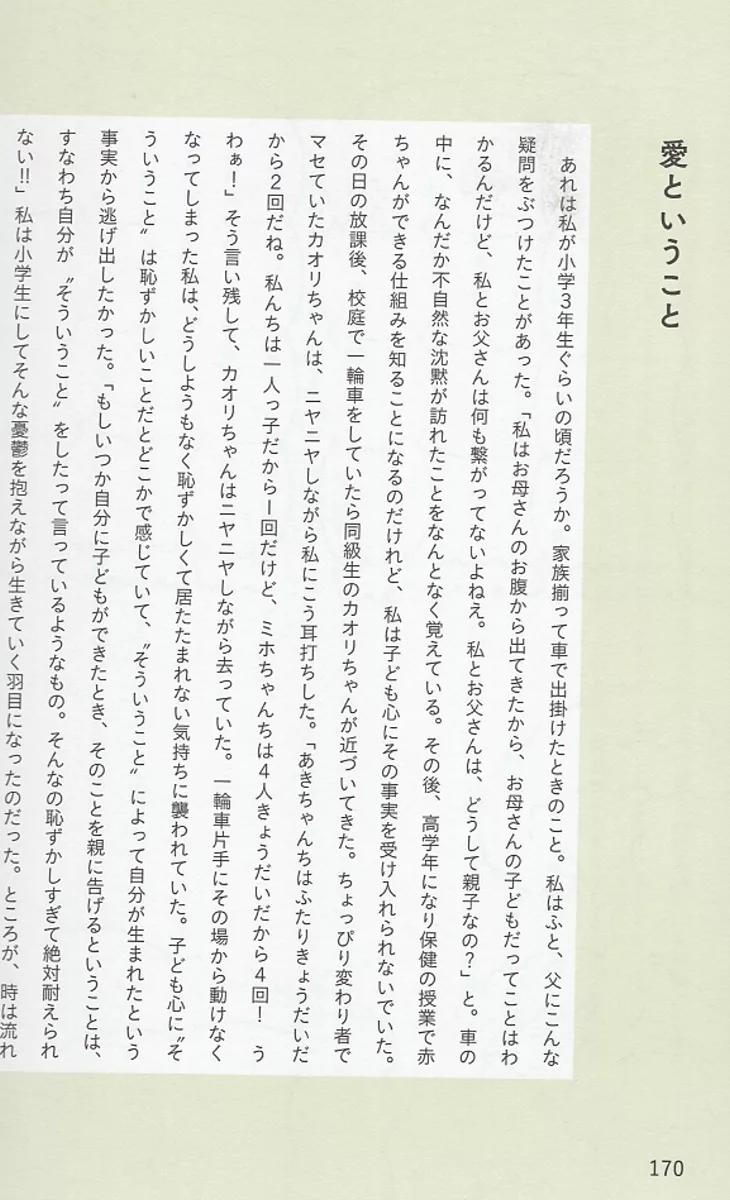 愛ということ
あれは私が小学3年生ぐらいの頃だろうか。家族揃って車で出掛けたときのこと。私はふと、父にこんな
疑問をぶつけたことがあった。「私はお母さんのお腹から出てきたから、お母さんの子どもだってことはわ
かるんだけど、私とお父さんは何も繋がってないよねえ。私とお父さんは、どうして親子なの?」と。車の
中に、なんだか不自然な沈黙が訪れたことをなんとなく覚えている。その後、高学年になり保健の授業で赤
ちゃんができる仕組みを知ることになるのだけれど、私は子ども心にその事実を受け入れられないでいた。
その日の放課後、校庭で一輪車をしていたら同級生のカオリちゃんが近づいてきた。ちょっぴり変わり者で
マセていたカオリちゃんは、ニヤニヤしながら私にこう耳打ちした。「あきちゃんちはふたりきょうだいだ
から2回だね。私んちは一人っ子だから1回だけど、ミホちゃんちは4人きょうだいだから4回! う
わぁ!」そう言い残して、カオリちゃんはニヤニヤしながら去っていた。一輪車片手にその場から動けなく
なってしまった私は、どうしようもなく恥ずかしくて居たたまれない気持ちに襲われていた。子ども心に〝そ
ういうこと〟は恥ずかしいことだとどこかで感じていて、〝そういうこと〟によって自分が生まれたという
事実から逃げ出したかった。「もしいつか自分に子どもができたとき、そのことを親に告げるということは、
すなわち自分が〝そういうこと〟をしたって言っているようなもの。そんなの恥ずかしすぎて絶対耐えられ
ない!!」私は小学生にしてそんな憂鬱を抱えながら生きていく羽目になったのだった。ところが、時は流れ
170